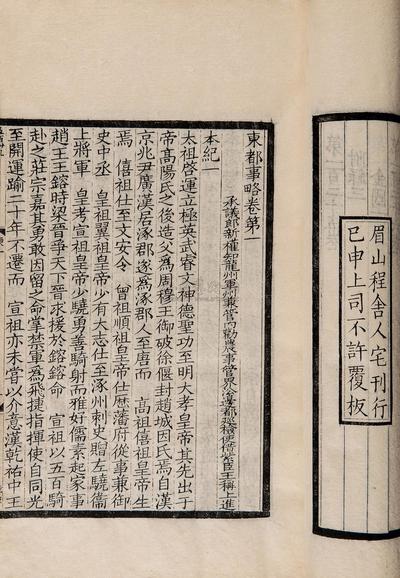 眉山程舍人宅刊行
已申上司不許覆板
東都事略卷第一
承議郎新權知龍州軍州兼管內勸農事管界沿邊都巡檢使借紫臣王稱上進
本紀一
太祖啓運立極英武睿文神德聖功至明大孝皇帝其先出于
帝高陽氏之後造父為周穆王御破徐偃封趙城因氏焉自漢
京兆尹廣漢居涿郡遂為涿郡人至唐而 高祖僖祖皇帝生
焉 僖祖仕至文安令 曾祖順祖皇帝仕歷藩府從事兼御
史中丞 皇祖翼祖皇帝少有大志仕至涿州刺史贈左驍衛
上將軍 皇考宣祖皇帝少驍勇善騎射而雅好儒素起家事
趙王王鎔時梁晉爭天下晉求援於鎔鎔命 宣祖以五百騎
赴之莊宗嘉其勇敢因留之命掌禁軍為飛捷指揮使自同光
至開運踰二十年不遷而 宣祖亦未嘗以介意漢乾祐中王